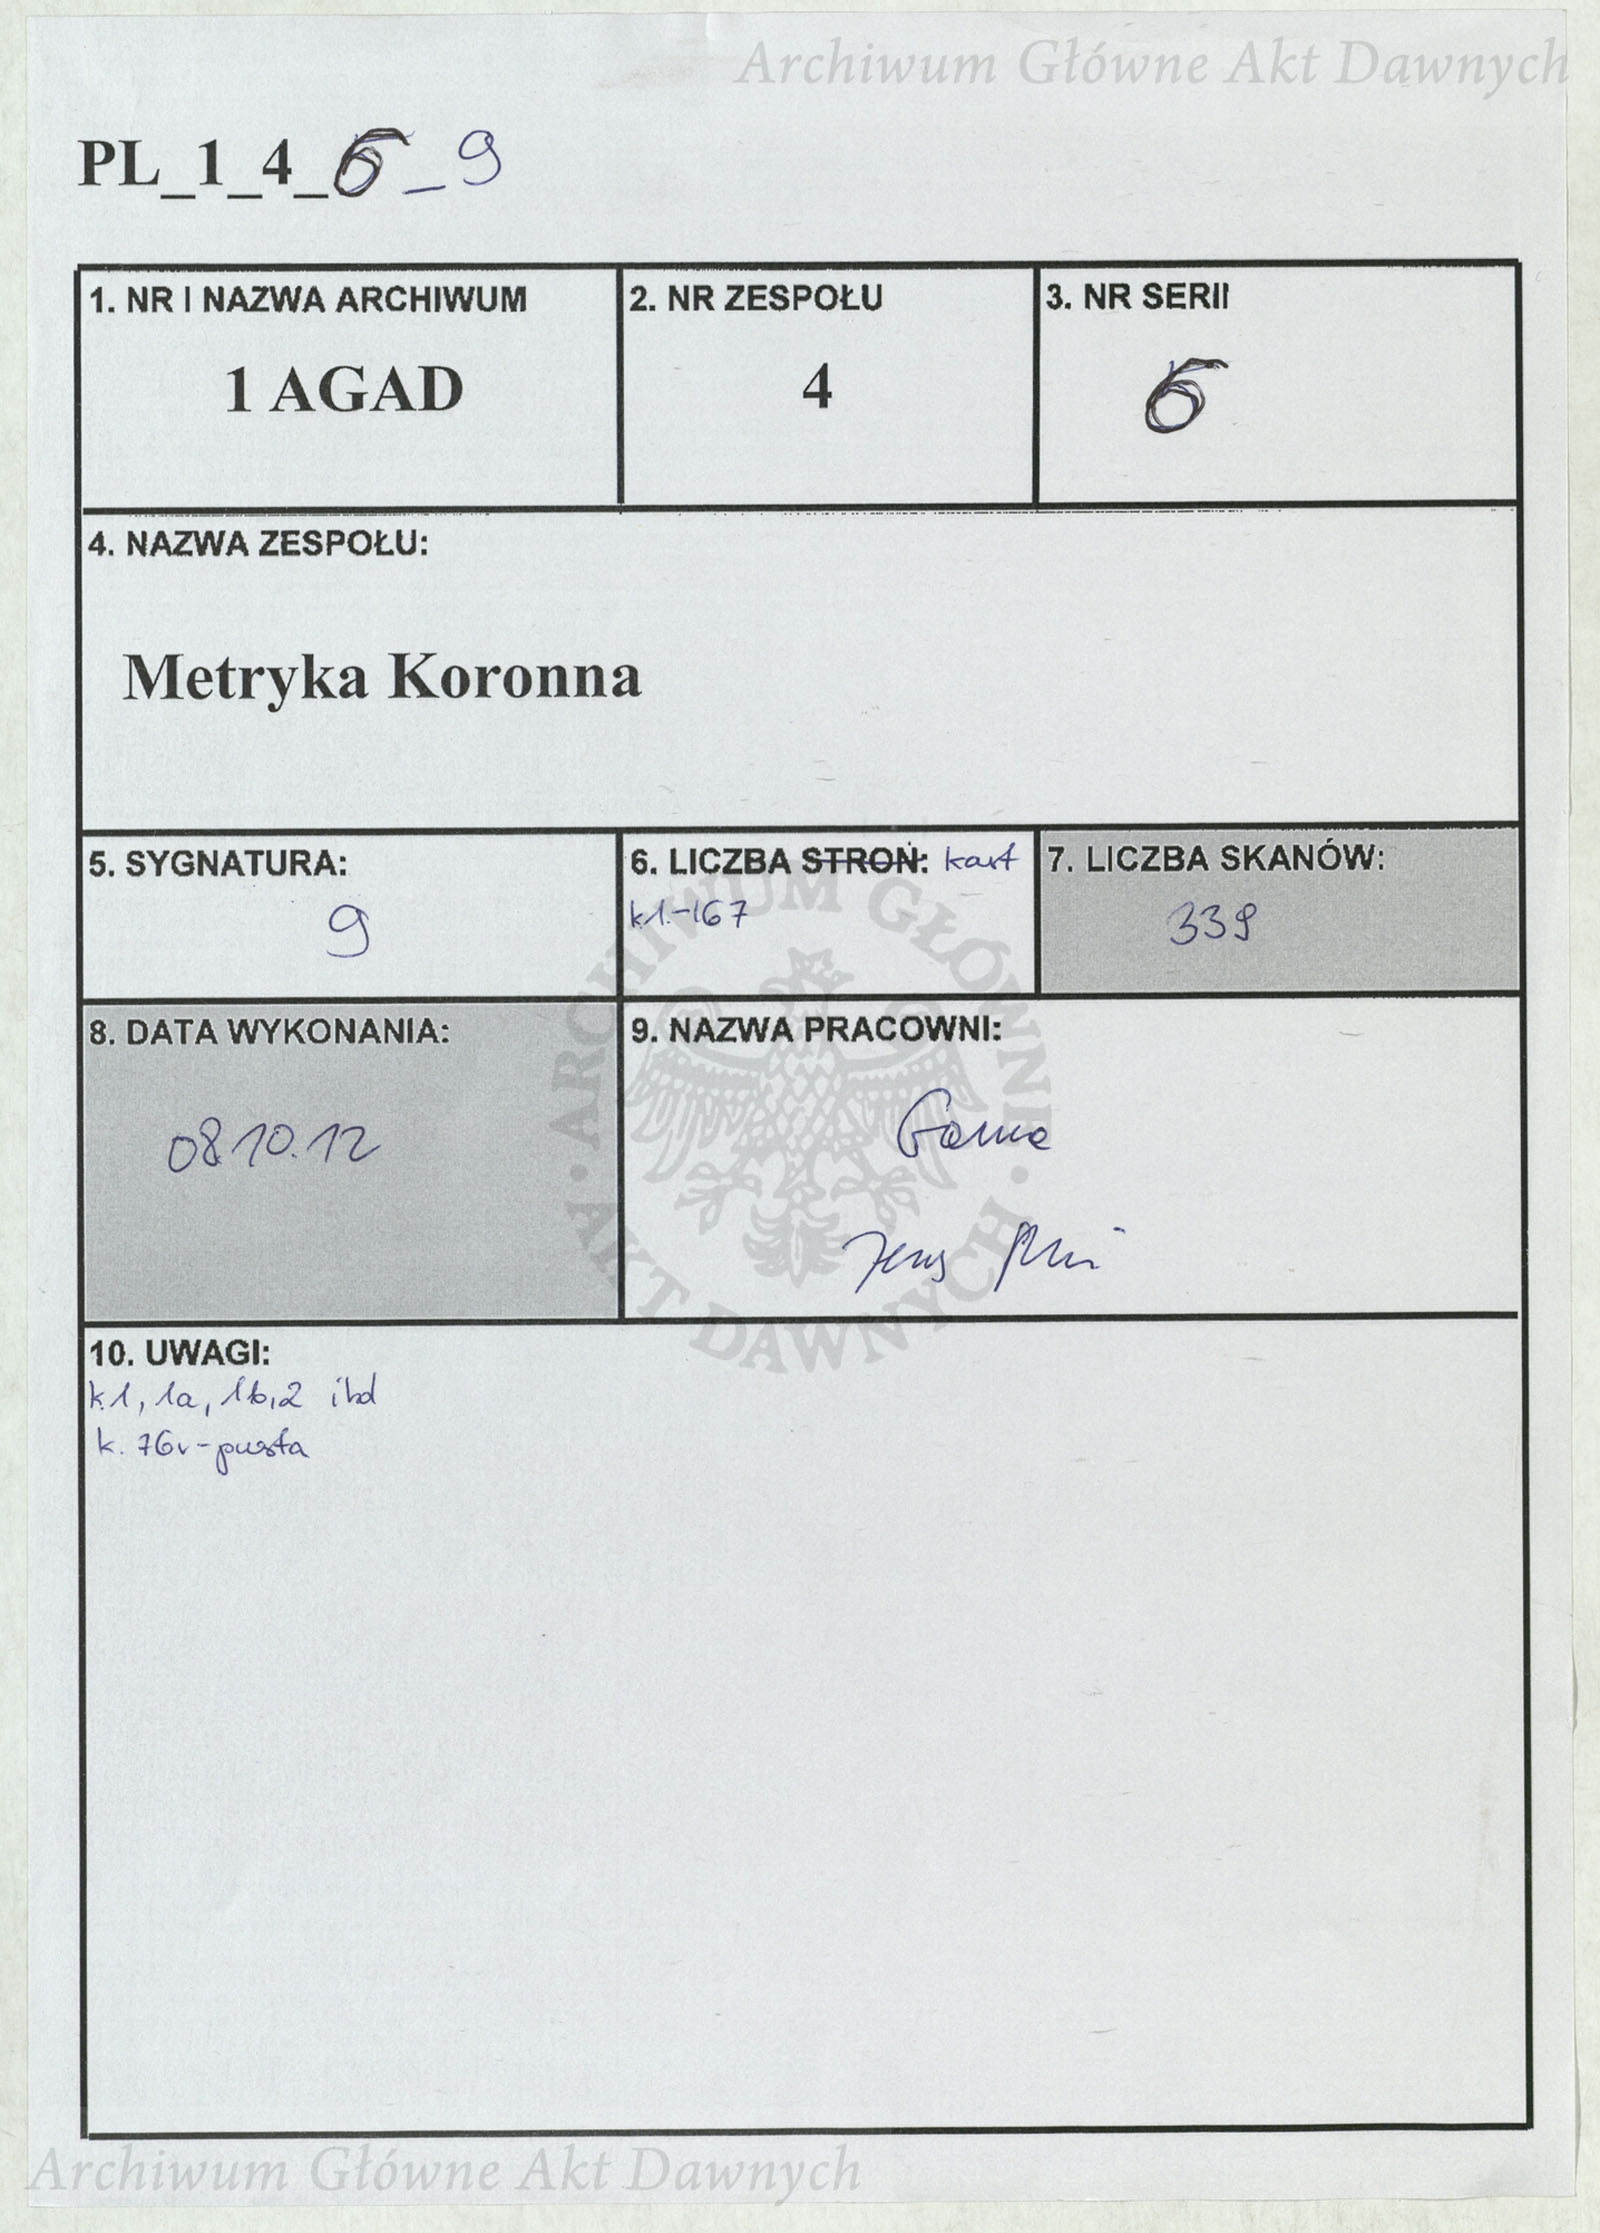 Archiwum Główne Akt Dawnych
PL_1_4_6_9
1. NR I NAZWA ARCHIWUM
1 AGAD
2. NR ZESPOŁU
4
3. NR SERII
6
4. NAZWA ZESPOŁU:
Metryka Koronna
5. SYGNATURA:
9
6. LICZBA STRON: kart
k.1.-167
7. LICZBA SKANÓW:
339
8. DATA WYKONANIA:
08.10.12
9. NAZWA PRACOWNI:
10. UWAGI:
k.1, 1a, 1b, 2 itd
k. 76v - pusta
ARCHIWUM GŁÓWNE · AKT DAWNYCH ·
Archiwum Główne Akt Dawnych